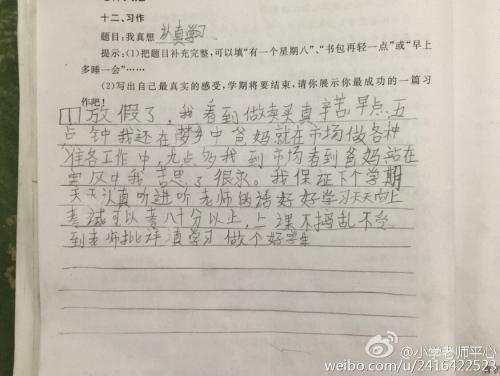 十二、习作
题目：我真想 认真学习
提示：(1)把题目补充完整，可以填“有一个星期八”、“书包再轻一点”或“早上
多睡一会”……
(2)写出自己最真实的感受，学期将要结束，请你展示你最成功的一篇习
作吧！
放假了，我看到做卖买真辛苦，早点五
点钟我还在梦乡中爸妈就在市场做各种
准备工作中，九点多我到市场看到爸妈站在
寒风中我苦思了很久。我保证下个学期
天天认真听进听老师的话好好学习天天向上
考试可以考八十分以上，上课不捣乱不受
到老师批评 学习做个好学生
@小学老师平心
weibo.com/u/2416422523